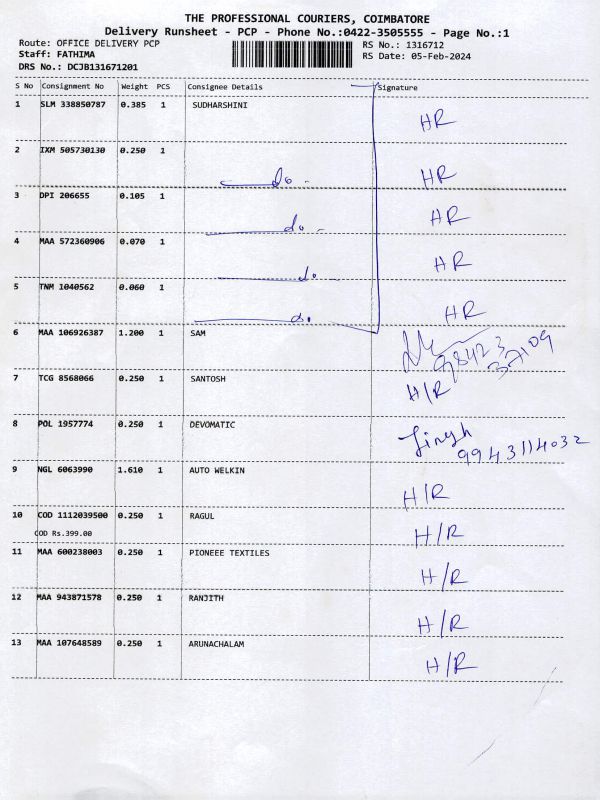 THE PROFESSIONAL COURIERS, COIMBATORE
Delivery Runsheet - PCP - Phone No.:0422-3505555 - Page No.:1
Route: OFFICE DELIVERY PCP RS No.: 1316712
Staff: FATHIMA RS Date: 05-Feb-2024
DRS No.: DCJB131671201
S No Consignment No Weight PCS Consignee Details Signature
1 SLM 338850787 0.385 1 SUDHARSHINI HR
2 IXM 505730130 0.250 1 do. HR
3 DPI 206655 0.105 1 do. HR
4 MAA 572360906 0.070 1 do. HR
5 TNM 1040562 0.060 1 do. HR
6 MAA 106926387 1.200 1 SAM 98423 37109
7 TCG 8568066 0.250 1 SANTOSH H/R
8 POL 1957774 0.250 1 DEVOMATIC 9943114032
9 NGL 6063990 1.610 1 AUTO WELKIN H/R
10 COD 1112039500 0.250 1 RAGUL H/R
COD Rs.399.00
11 MAA 600238003 0.250 1 PIONEEE TEXTILES H/R
12 MAA 943871578 0.250 1 RANJITH H/R
13 MAA 107648589 0.250 1 ARUNACHALAM H/R